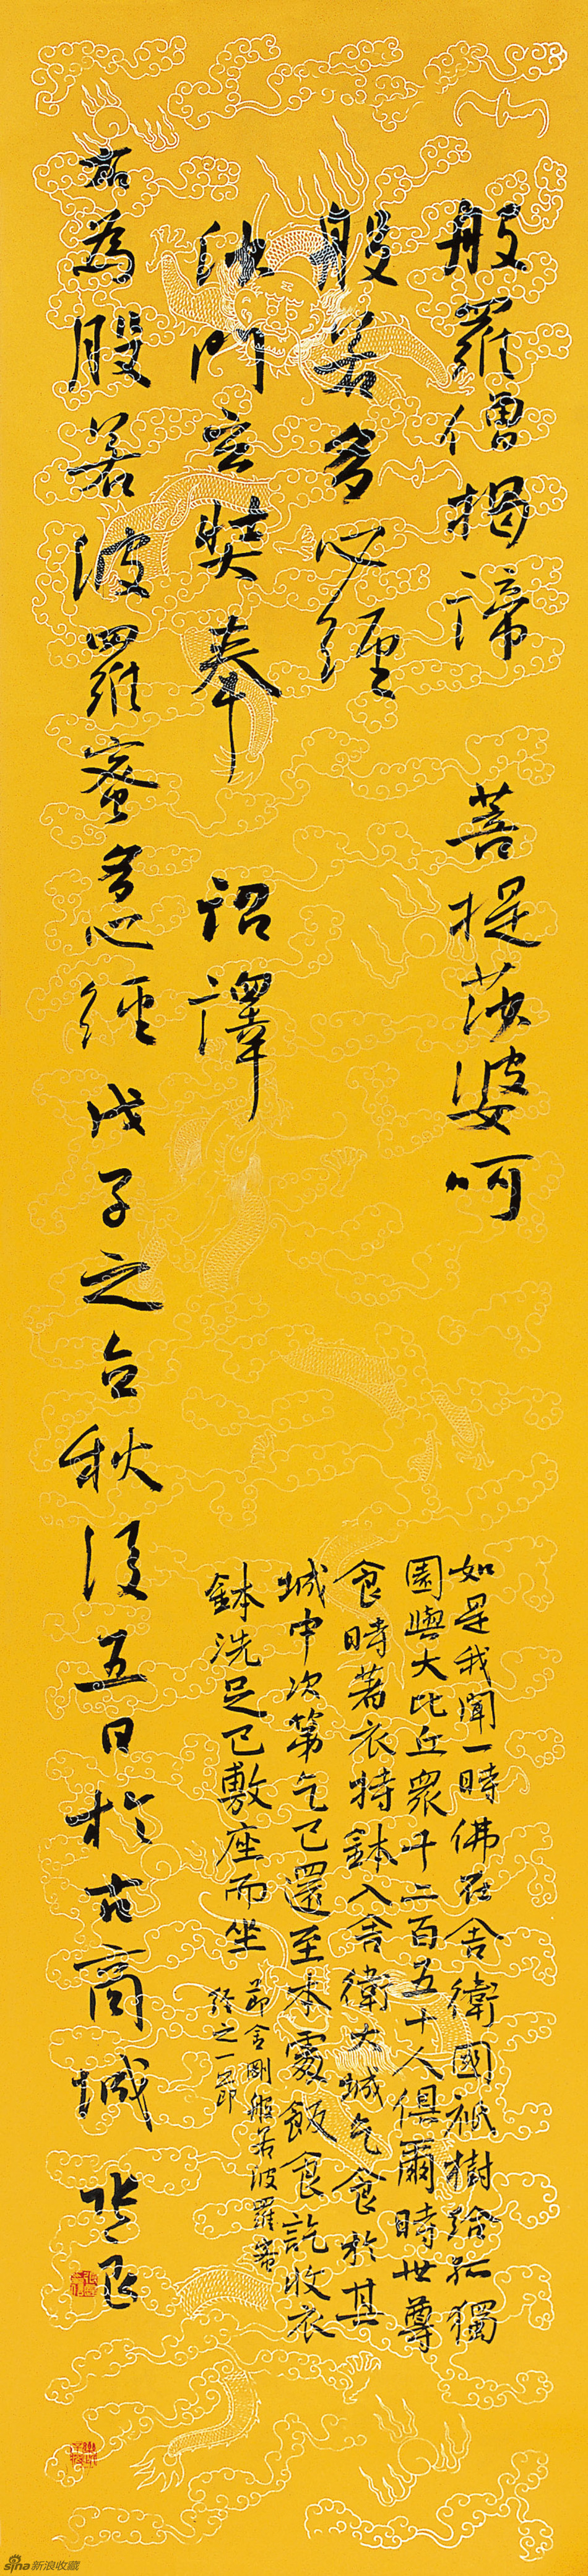 般羅僧揭諦 菩提莎婆呵
般若多心經
沙門玄奘奉 詔譯
右為般若波羅蜜多心經戊子之秋後五日於古商城
如是我聞一時佛在舍衛國祇樹給孤獨
園與大比丘眾千二百五十人俱爾時世尊
食時著衣持鉢入舍衛大城乞食於其
城中次第乞已還至本處飯食訖收衣
鉢洗足已敷座而坐
節金剛般若波羅蜜
經之一節
sina新浪收藏